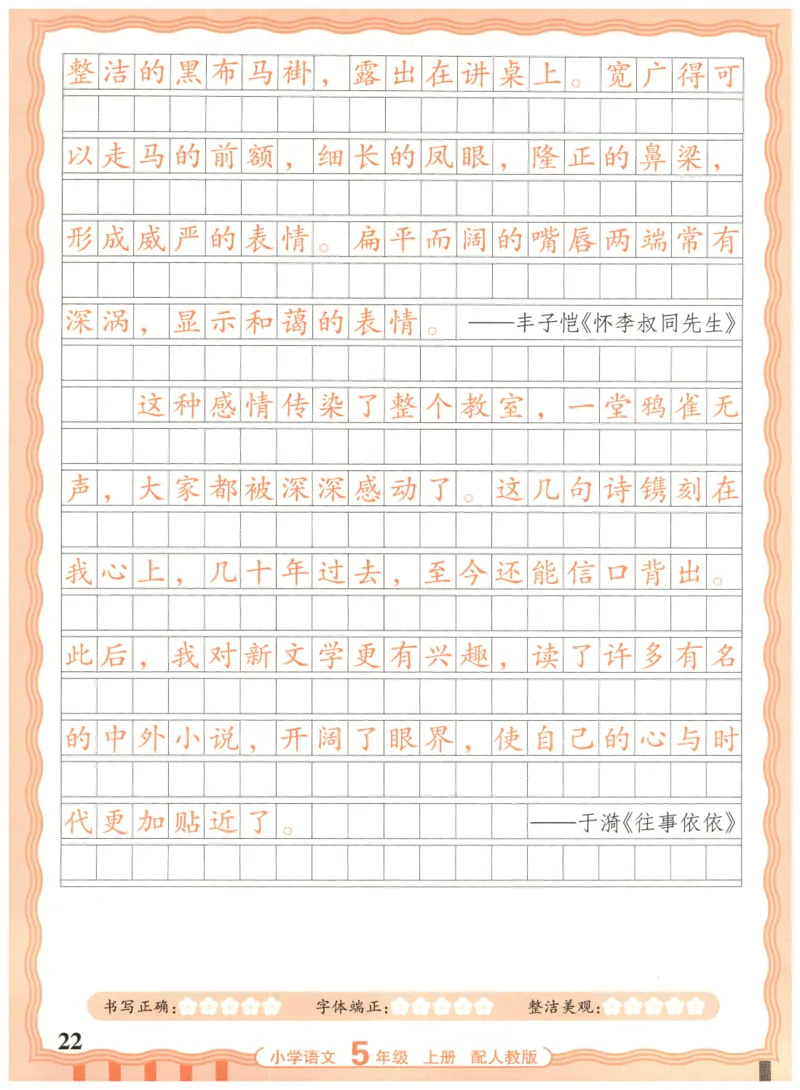 整洁的黑布马褂，露出在讲桌上。宽广得可
以走马的前额，细长的凤眼，隆正的鼻梁，
形成威严的表情。扁平而阔的嘴唇两端常有
深涡，显示和蔼的表情。——丰子恺《怀李叔同先生》
这种感情传染了整个教室，一堂鸦雀无
声，大家都被深深感动了。这几句诗镌刻在
我心上，几十年过去，至今还能信口背出。
此后，我对新文学更有兴趣，读了许多有名
的中外小说，开阔了眼界，使自己的心与时
代更加贴近了。——于漪《往事依依》
书写正确： 字体端正： 整洁美观：
22
小学语文 5年级 上册 配人教版